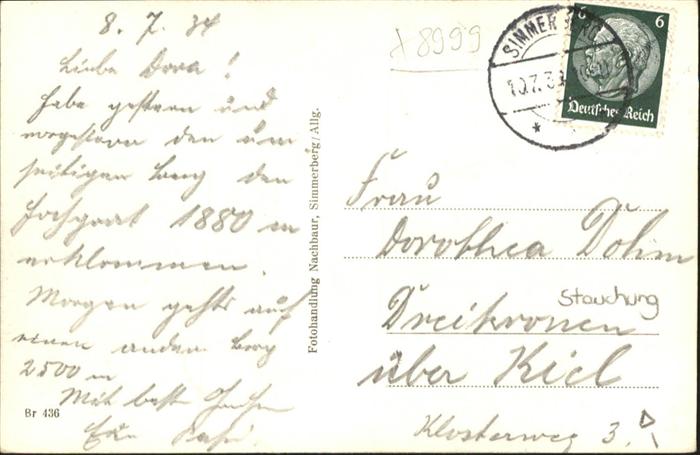 8. 7. 34
Liebe Dora!
Habe gestern und
vorgestern den um
seitigen Berg den
Hochgrat 1880 m
erklommen.
Morgen gehts auf
einen andern Berg
2500 m
Mit best
Br 436
Fotohandlung Nachbaur, Simmerberg/Allg.
x 8999
SIMMERBERG
10.7.3
6 6
Deutsches Reich
Frau
Dorothea Dohm
Stauchung
Dreikronen
über Kiel
Klosterweg 3.